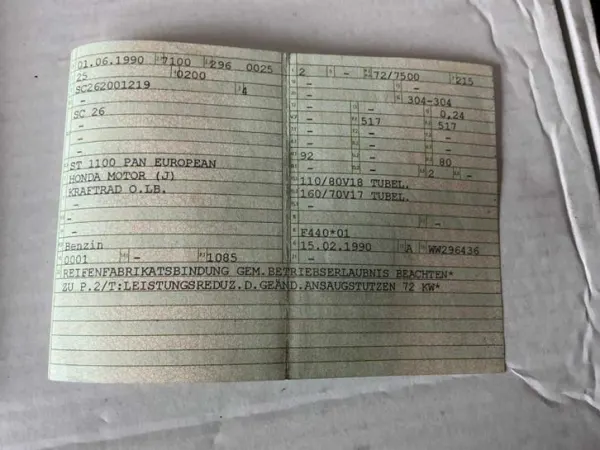 01.06.1990 7100 296 0025
25 0200
SC262001219 4
-
SC 26
-
-
ST 1100 PAN EUROPEAN
HONDA MOTOR (J)
KRAFTRAD O.LB.
-
-
Benzin
0001 - 1085
2 - 72/7500 215
- -
- 304-304
- - 0,24
- 517 517
- - -
92 - 80
- - 2 -
110/80V18 TUBEL.
160/70V17 TUBEL.
-
-
F440*01
15.02.1990 A WW296436
REIFENFABRIKATSBINDUNG GEM.BETRIEBSERLAUBNIS BEACHTEN*
ZU P.2/T:LEISTUNGSREDUZ.D.GEÄND.ANSAUGSTUTZEN 72 KW*